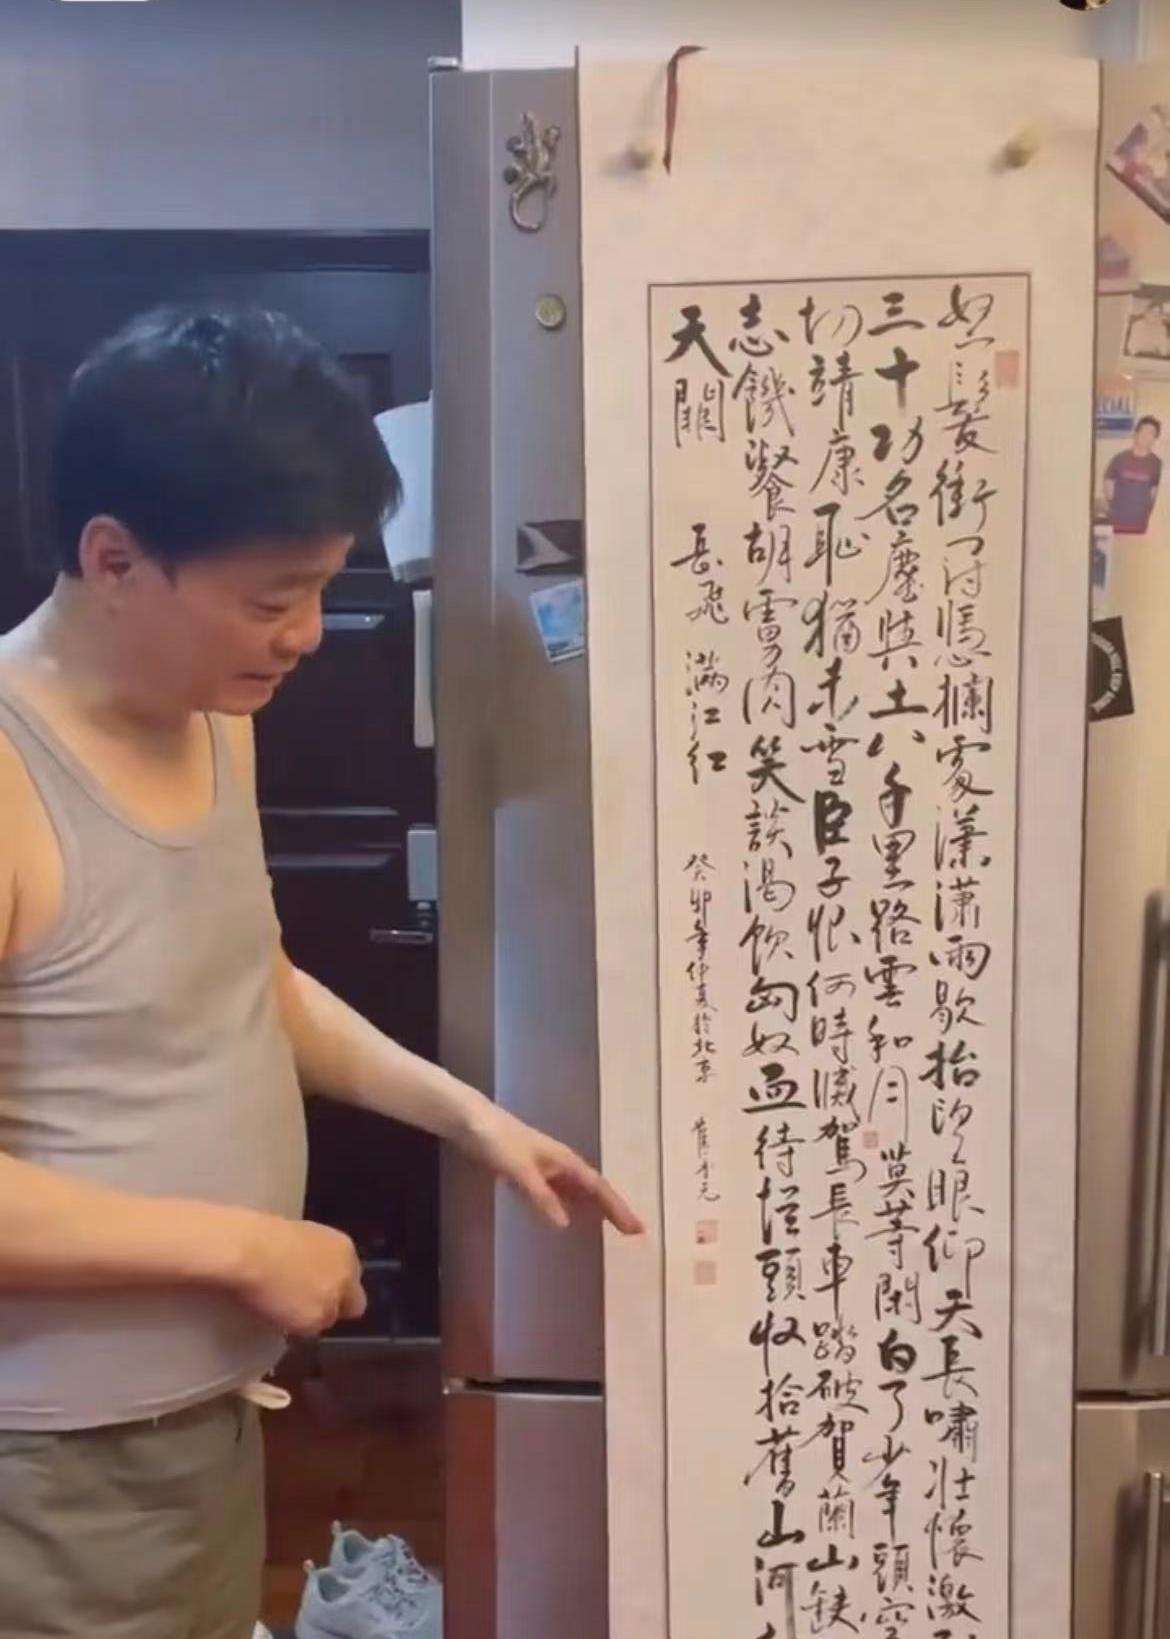 怒髮衝冠憑欄處瀟瀟雨歇抬望眼仰天長嘯壯懷激
三十功名塵與土八千里路雲和月莫等閑白了少年頭空
切靖康恥猶未雪臣子恨何時滅駕長車踏破賀蘭山缺
志饑餐胡虜肉笑談渴飲匈奴血待從頭收拾舊山河
天闕 岳飛 滿江紅 癸卯年仲夏於北京 崔永元